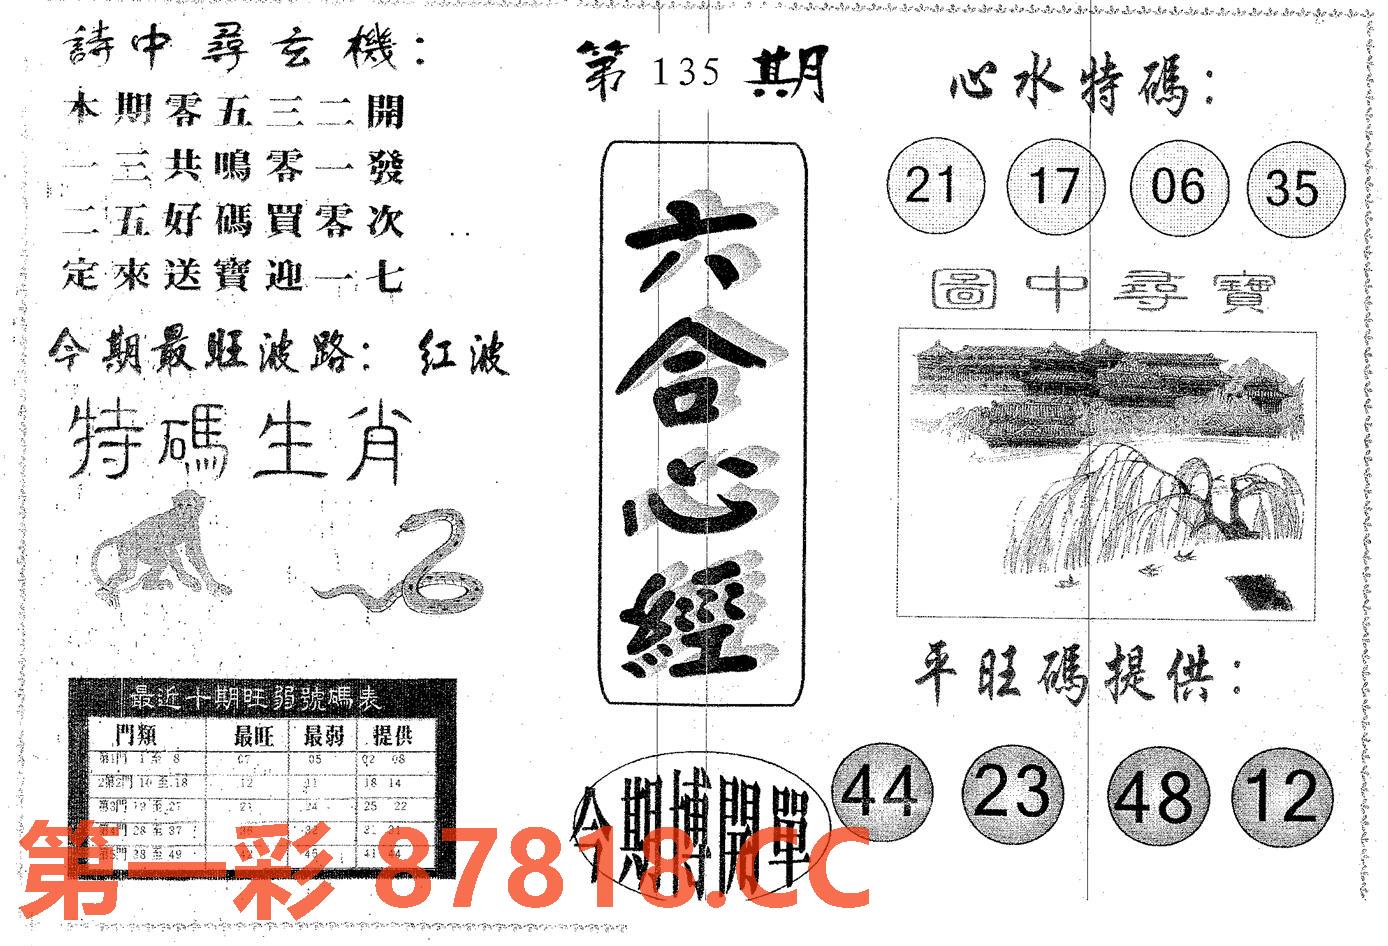 詩中尋玄機：
本期零五三二開
一三共鳴零一發
二五好碼買零次
定來送寶迎一七
今期最旺波路： 红波
特碼生肖
最近十期旺弱號碼表
門類 最旺 最弱 提供
第1門 1 至 8 07 05 02 08
2第2門 10 至 18 12 11 18 14
第3門 19 至 27 21 24 25 22
第4門 28 至 37 36 32 31
第5門 38 至 49 42 45 41 44
第 135 期
六合心經
今期博開單
心水特碼：
21 17 06 35
圖中尋寶
平旺碼提供：
44 23 48 12
第一彩 87818.CC